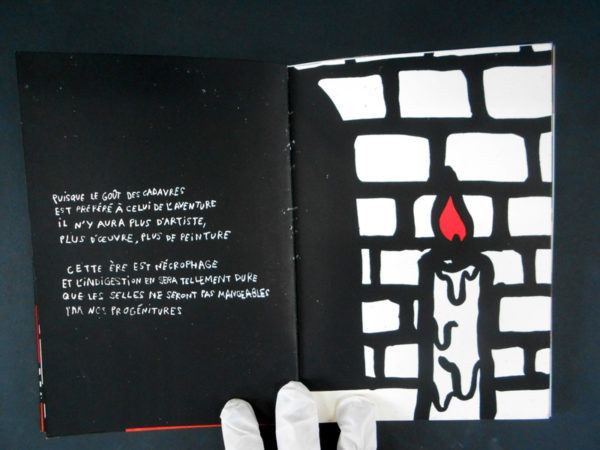 PUISQUE LE GOÛT DES CADAVRES
EST PRÉFÉRÉ À CELUI DE L'AVENTURE
IL N'Y AURA PLUS D'ARTISTE,
PLUS D'ŒUVRE, PLUS DE PEINTURE
CETTE ÈRE EST NÉCROPHAGE
ET L'INDIGESTION EN SERA TELLEMENT DURE
QUE LES SELLES NE SERONT PAS MANGEABLES
PAR NOS PROGÉNITURES